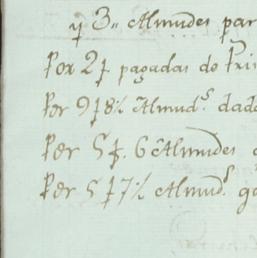 y 3,, Almudes par
Por 2 p. pagadas do Pri
Por 9 p 8½ Almud.s dad
Por 5 p. 6 Almudes
Por 5 p 7½ Almud.s